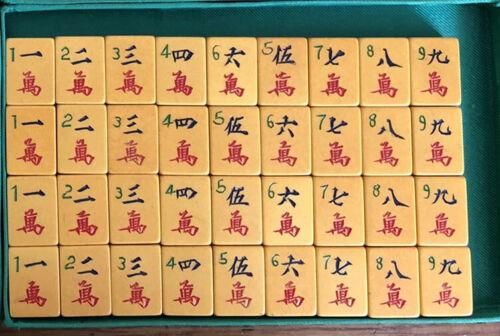 1一 2二 3三 4四 6六 5伍 7七 8八 9九
萬 萬 萬 萬 萬 萬 萬 萬 萬
1一 2二 3三 4四 5伍 6六 7七 8八 9九
萬 萬 萬 萬 萬 萬 萬 萬 萬
1一 2二 3三 4四 5伍 6六 7七 8八 9九
萬 萬 萬 萬 萬 萬 萬 萬 萬
1一 2二 3三 4四 5伍 6六 7七 8八 9九
萬 萬 萬 萬 萬 萬 萬 萬 萬